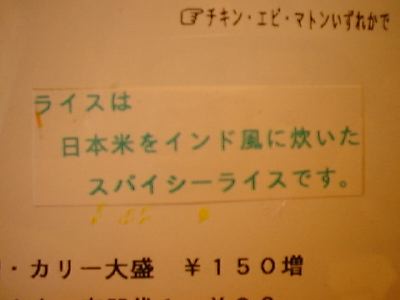 ☞チキン・エビ・マトンいずれかで
ライスは
日本米をインド風に炊いた
スパイシーライスです。
・カリー大盛 ¥150増